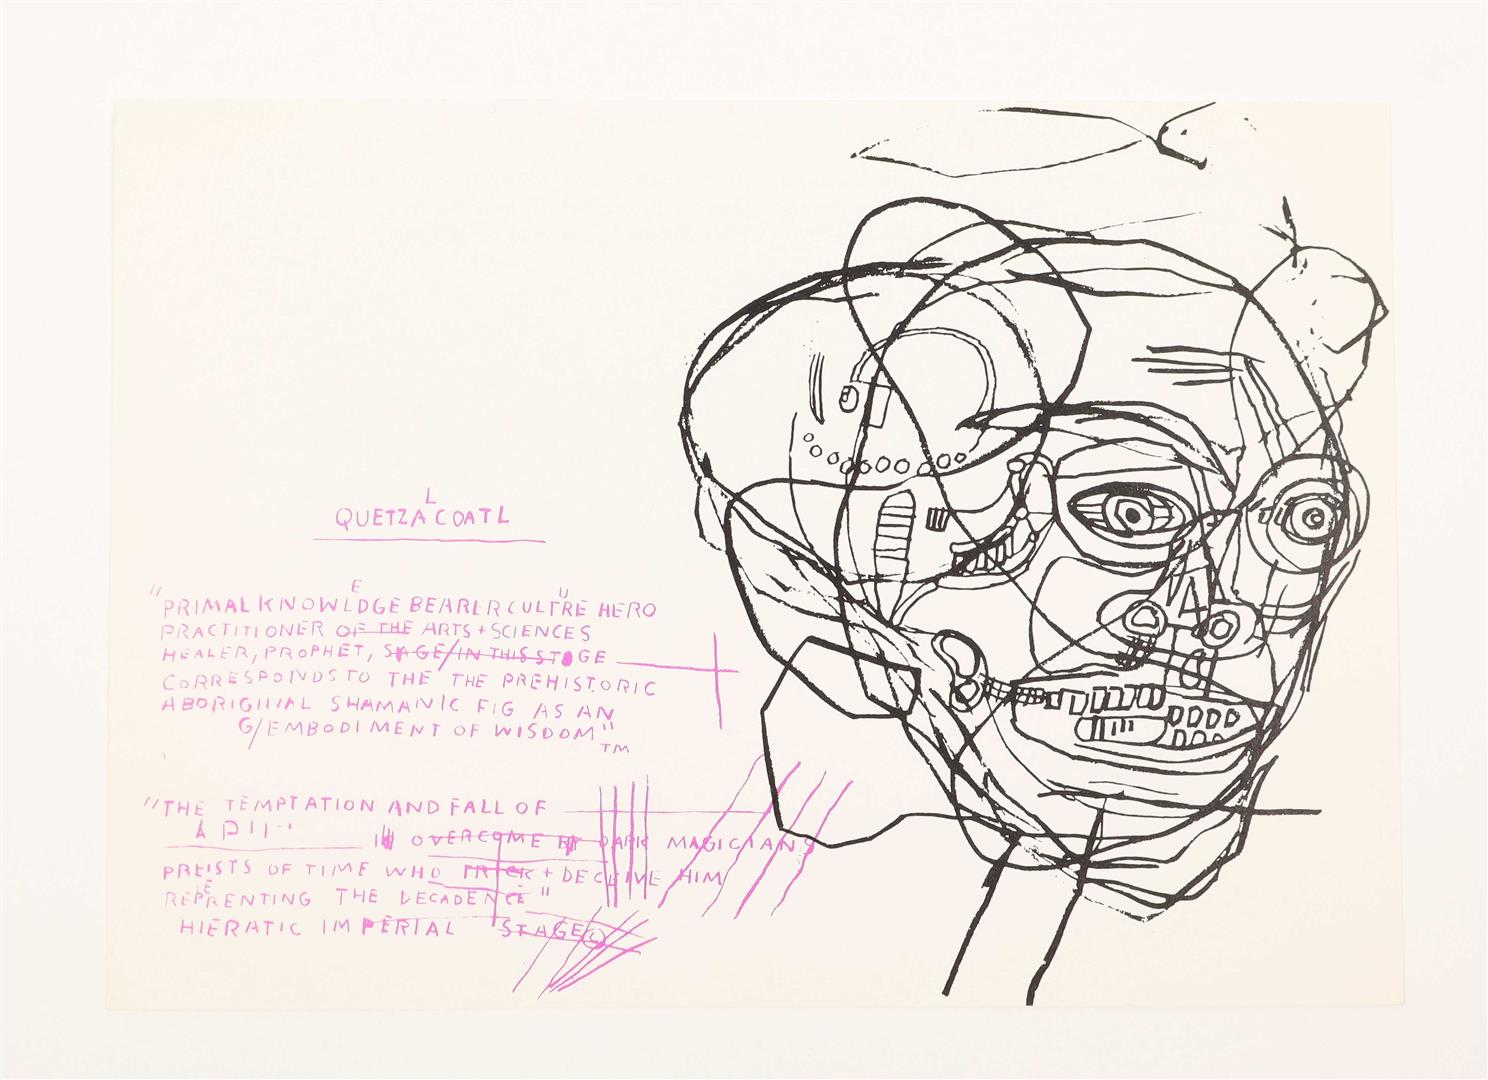 L
QUETZACOATL
E U
"PRIMAL KNOWLDGE BEARER CULTRE HERO
PRACTITIONER OF THE ARTS + SCIENCES
HEALER, PROPHET, SAGE/IN THIS STAGE
CORRESPONDS TO THE THE PREHISTORIC
ABORIGINAL SHAMANIC FIG AS AN
G/EMBODIMENT OF WISDOM"
TM
"THE TEMPTATION AND FALL OF
OVERCOME BY DARK MAGICIANS
PREISTS OF TIME WHO TRICK + DECEIVE HIM
REPRENTING THE DECADENCE"
HIERATIC IMPERIAL STAGE ©